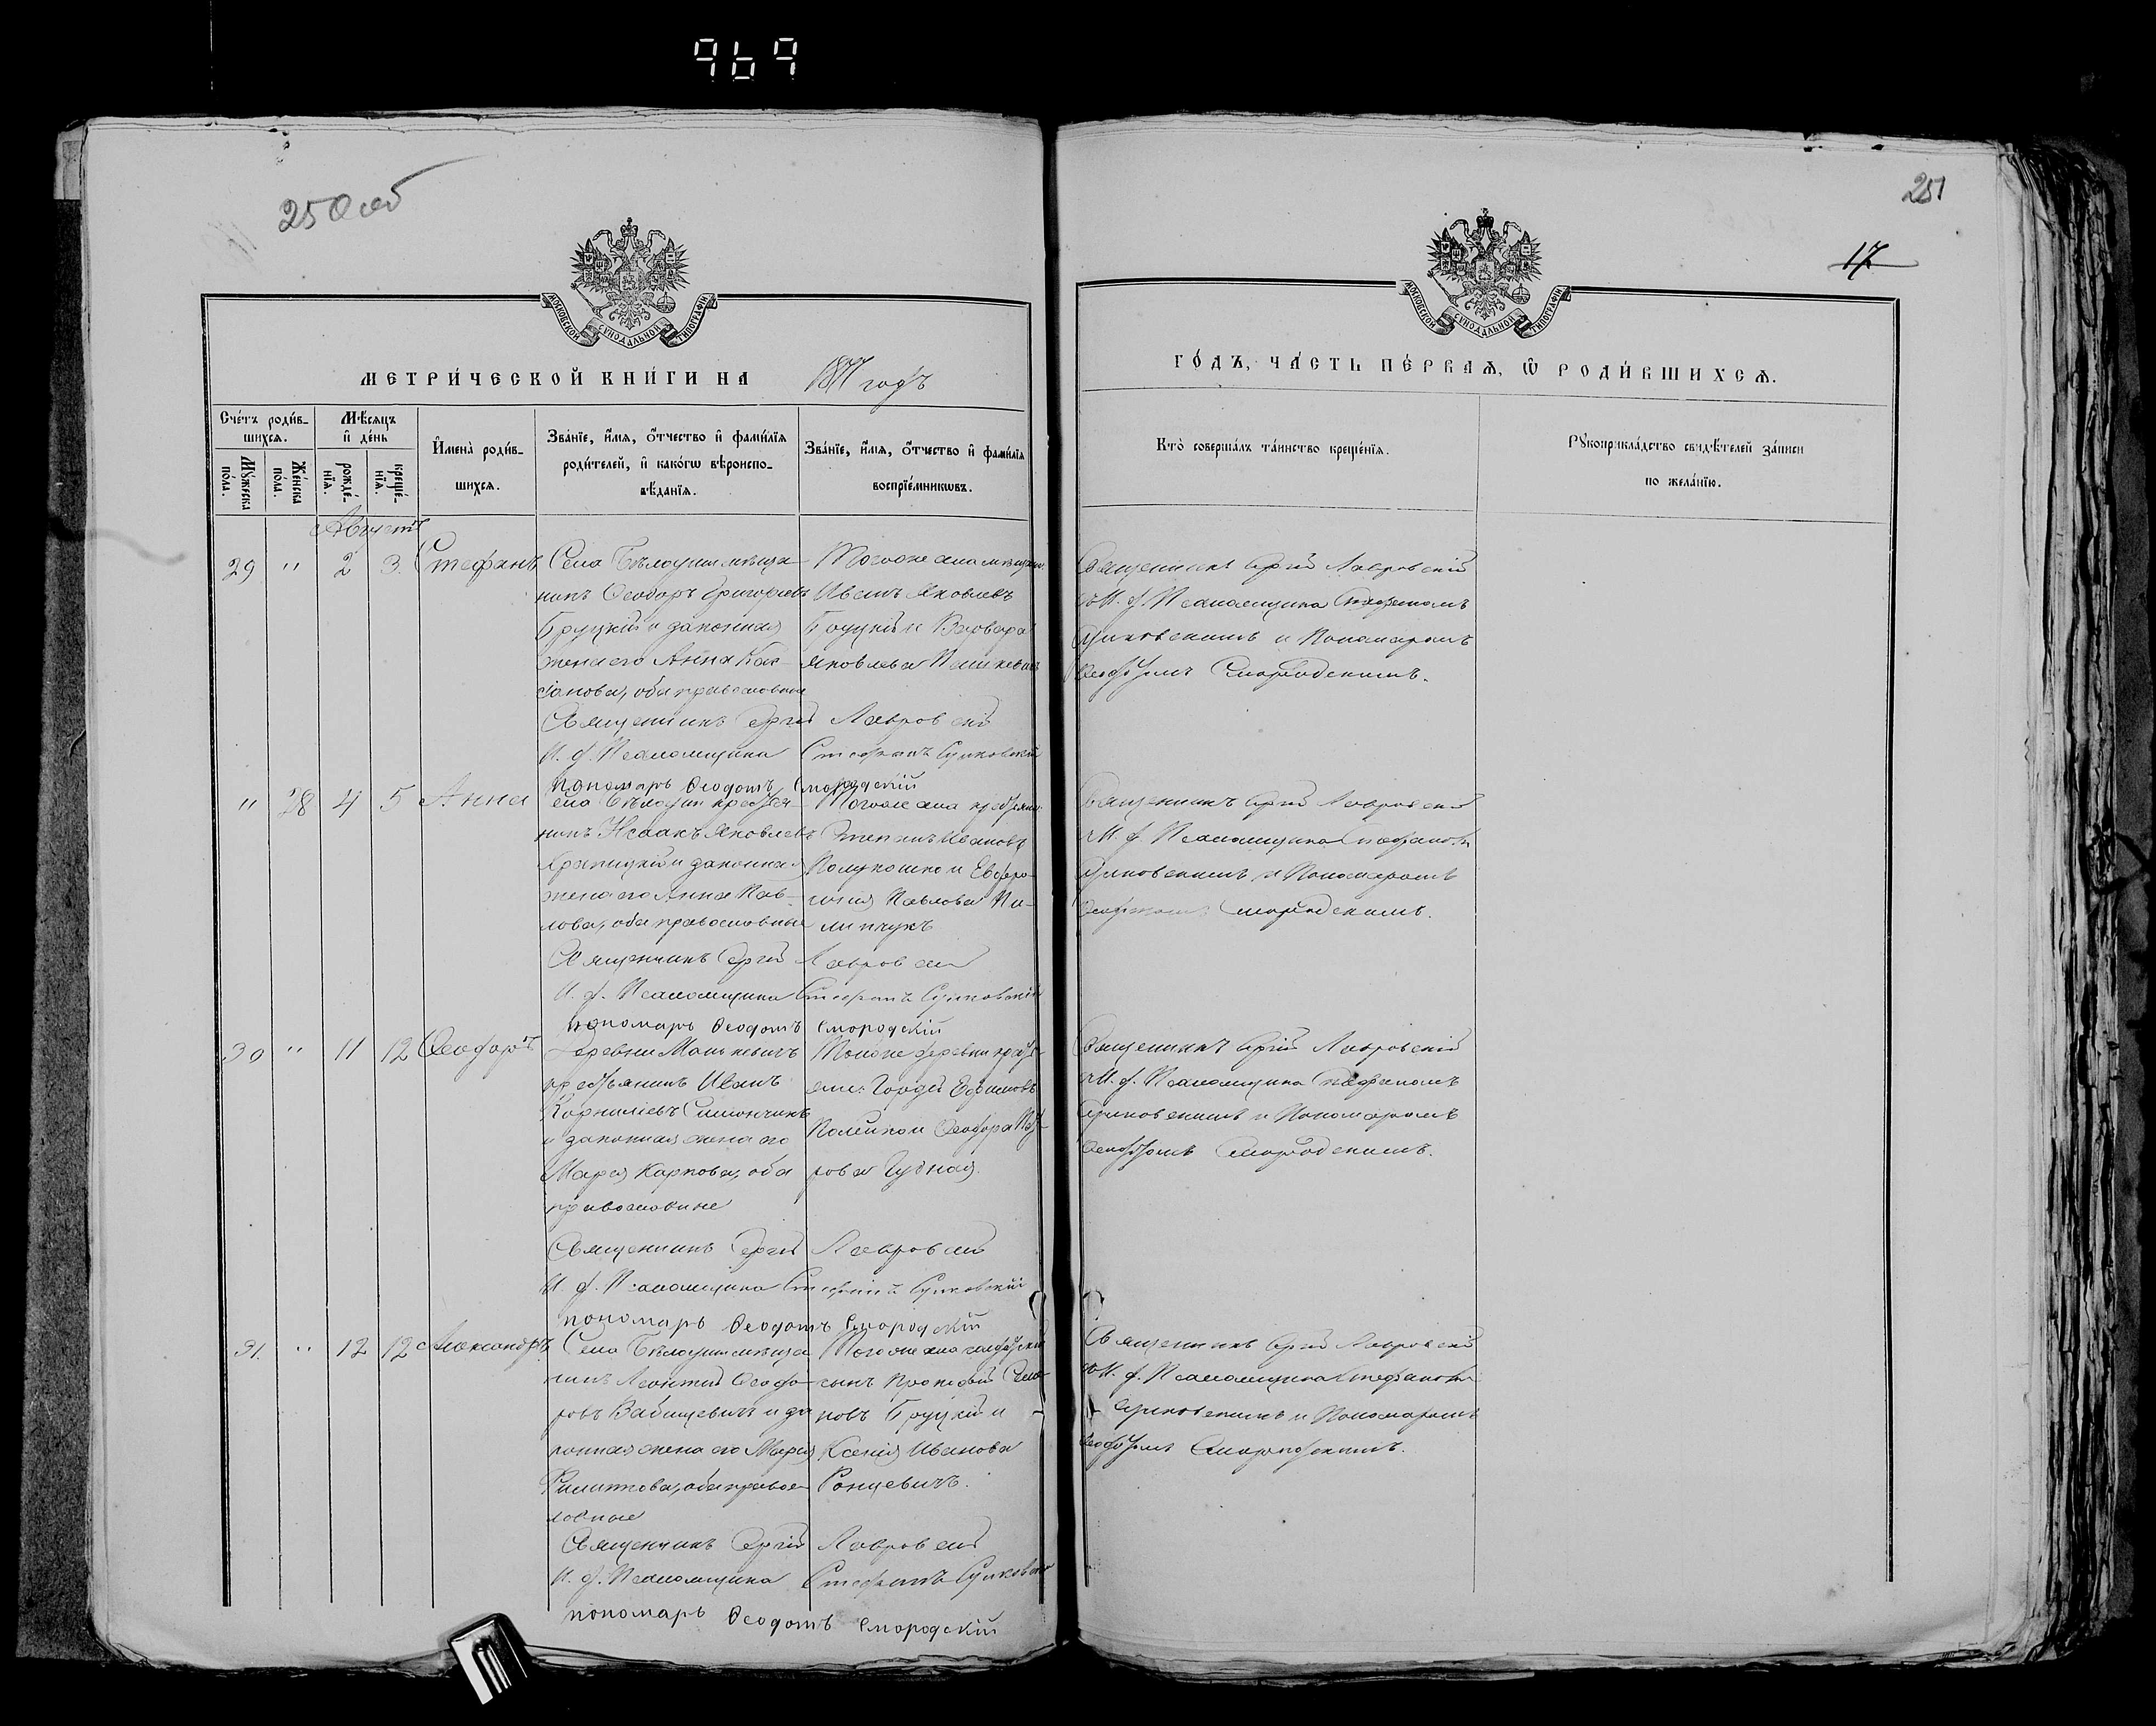 969
250 об
251
17
МОСКОВСКОЙ СУНОДАЛЬНОЙ ТИПОГРАФІИ
МОСКОВСКОЙ СУНОДАЛЬНОЙ ТИПОГРАФІИ
МЕТРИ́ЧЕСКОЙ КНИ́ГИ НА 1871 годъ
ГО́ДЪ, ЧА́СТЬ ПЕ́РВАѦ, Ѡ҆ РОДИ́ВШИХСѦ.
Сче́тъ роди́в-
шихсѧ.
Мꙋ́жеска
по́ла.
Же́нска
по́ла.
Мѣ́сѧцъ
и҆ де́нь
рожде́-
нїѧ.
креще́-
нїѧ.
И҆мена̀ роди́в-
шихсѧ.
Зва́нїе, и҆́мѧ, ѻ҆́тчество и҆ фамилїѧ
роди́телей, и҆ како́гѡ вѣроиспо-
вѣ́данїѧ.
Зва́нїе, и҆́мѧ, ѻ҆́тчество и҆ фамилїѧ
воспрїе́мникѡвъ.
Кто̀ соверша́лъ та́инство креще́нїѧ.
Рꙋкоприкла́дство свидѣ́телей за́писи
по жела́нїю.
Августъ
29 " 2 3. Стефанъ
Села Бѣлодуши мѣща-
нинъ Ѳеодоръ Григорьевъ
Бруцкій и законная
жена его Анна Кас-
сіанова, оба православные
Тогоже села мѣщан:
Иванъ Яковлевъ
Бруцкій и Варвара
Яковлева
Священникъ Сергій Лавровскій
съ И. д. Псаломщика Стефаномъ
Сулковскимъ и Пономаремъ
Ѳеодотомъ Смородскимъ.
Священникъ Сергій Лавровскій
И. д. Псаломщика Стефанъ Сулковскій
пономарь Ѳеодотъ Смородскій
" 28 4 5 Анна
Села Бѣлодуши крестья-
нинъ Исаакъ Яковлевъ
и законная
жена его Анна Пав-
лова, оба православные
Тогоже села крестьянин:
Степанъ Ивановъ
и Евфро-
синія Павлова Пи-
липчукъ
Священникъ Сергій Лавровскій
съ И. д. Псаломщика Стефаномъ
Сулковскимъ и Пономаремъ
Ѳеодотомъ Смородскимъ.
Священникъ Сергій Лавровскій
И. д. Псаломщика Стефанъ Сулковскій
пономарь Ѳеодотъ Смородскій
30 " 11 12 Ѳеодоръ
Деревни Манькевичъ
крестьянинъ Иванъ
Корниліевъ Симончикъ
и законная жена его
Марія Карпова, оба
православные
Тойже деревни кресть-
ян: Гордѣй Ефимовъ
и Ѳеодора Пет-
рова
Священникъ Сергій Лавровскій
съ И. д. Псаломщика Стефаномъ
Сулковскимъ и Пономаремъ
Ѳеодотомъ Смородскимъ.
Священникъ Сергій Лавровскій
И. д. Псаломщика Стефанъ Сулковскій
пономарь Ѳеодотъ Смородскій
31. " 12 12 Александръ
Села Бѣлодуши мѣща-
нинъ Леонтій Ѳеодо-
ровъ Бабицевичъ и за-
конная жена его Марія
Филиппова, оба правос-
лавные
Тогоже села
сынъ Прокофій
Бруцкій и
Ксенія Иванова
Ронцевичъ.
Священникъ Сергій Лавровскій
съ И. д. Псаломщика Стефаномъ
Сулковскимъ и Пономаремъ
Ѳеодотомъ Смородскимъ.
Священникъ Сергій Лавровскій
И. д. Псаломщика Стефанъ Сулковскій
пономарь Ѳеодотъ Смородскій